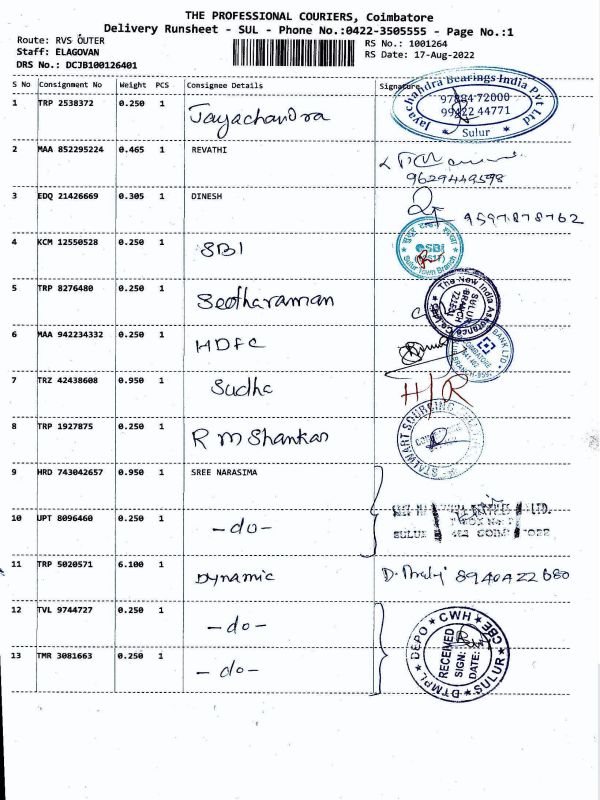 THE PROFESSIONAL COURIERS, Coimbatore
Delivery Runsheet - SUL - Phone No.:0422-3505555 - Page No.:1
Route: RVS OUTER
RS No.: 1001264
Staff: ELAGOVAN
RS Date: 17-Aug-2022
DRS No.: DCJB100126401
S No Consignment No Weight PCS Consignee Details Signature
1 TRP 2538372 0.250 1 Jayachandra
Jayachandra Bearings India Pvt Ltd
97884 72000
99422 44771
* Sulur *
2 MAA 852295224 0.465 1 REVATHI
9629449598
3 EDQ 21426669 0.305 1 DINESH 9597878762
4 KCM 12550528 0.250 1 SBI
SBI
Sulur Town Branch
5 TRP 8276480 0.250 1 Seetharaman
The New India Assurance
SULUR
BRANCH
6 MAA 942234332 0.250 1 HDFC
BANK LTD
7 TRZ 42438608 0.950 1 Sudha H/R
8 TRP 1927875 0.250 1 R M Shankar
STALWART SOURCING
9 HRD 743042657 0.950 1 SREE NARASIMA
LTD.
10 UPT 8096460 0.250 1 -do-
SULUR
11 TRP 5020571 6.100 1 Dynamic 8940422680
12 TVL 9744727 0.250 1 -do-
DTMPL DEPO * CWH * CBE SULUR
RECEIVED
SIGN:
DATE:
13 TMR 3081663 0.250 1 -do-